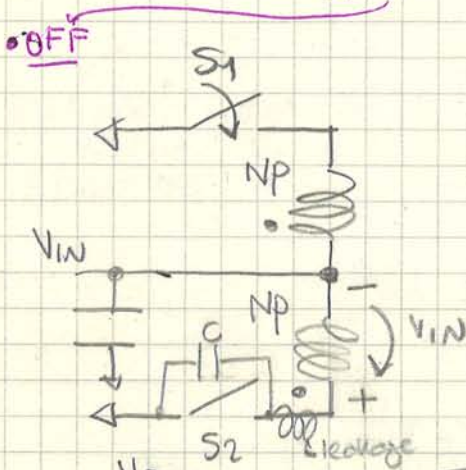 • OFF
S1
NP
VIN
NP
VIN
C
S2
Lleakage